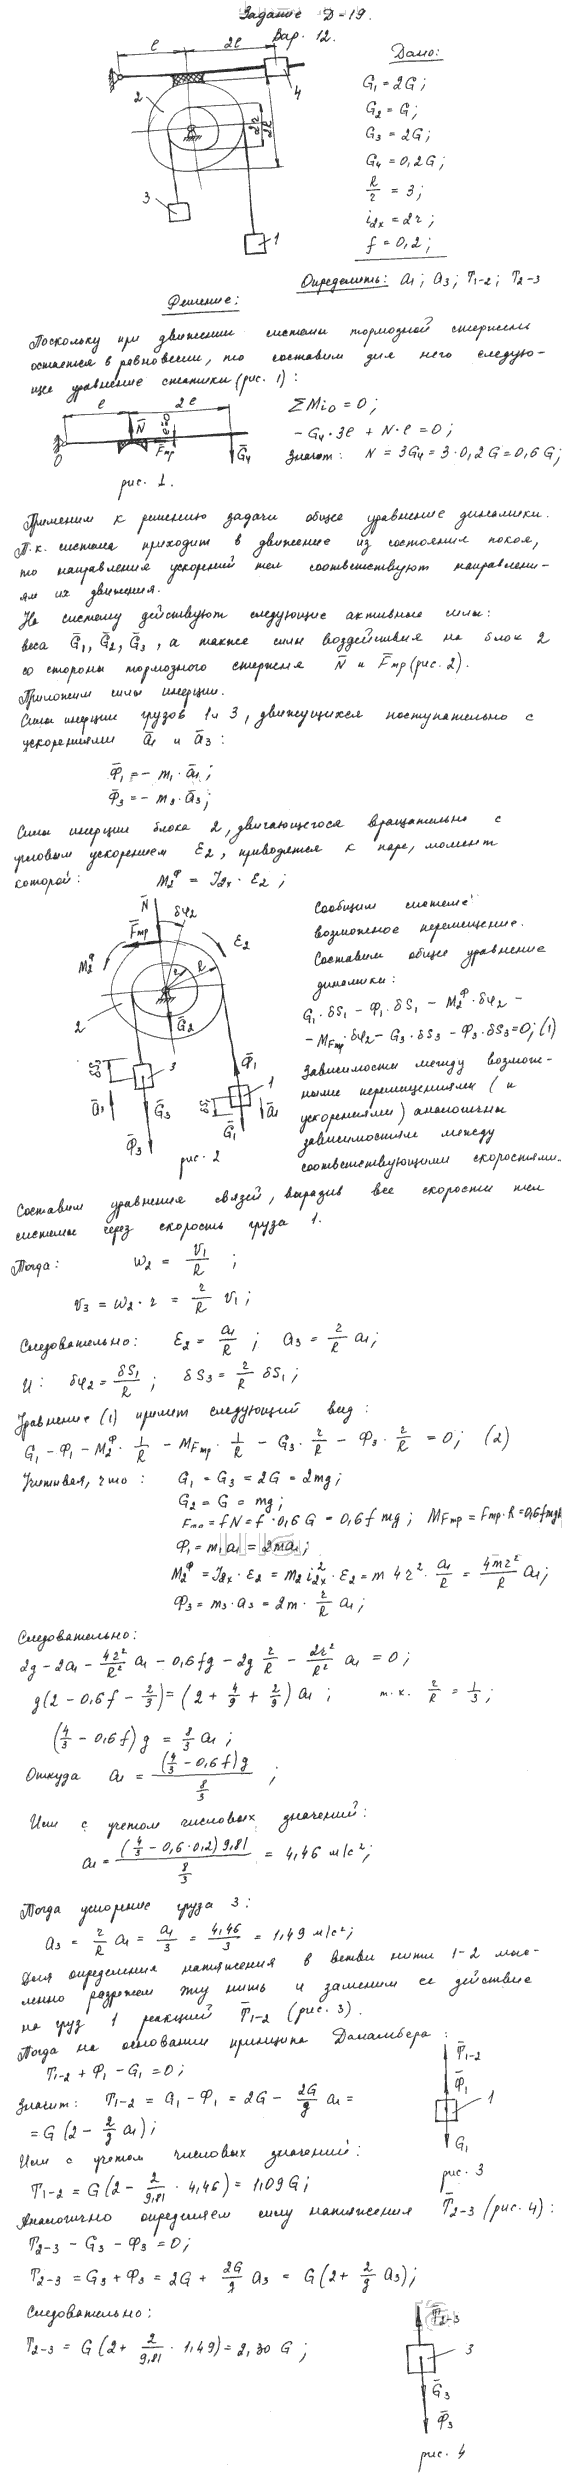 Задание Д-19.
Вар. 12.
Дано:
G₁ = 2G;
G₂ = G;
G₃ = 2G;
G₄ = 0,2G;
R/r = 3;
i₂ₓ = 2r;
f = 0,2;
l
2l
2
4
2r
2R
3
1
Определить: a₁; a₃; T₁₋₂; T₂₋₃
Решение:
Поскольку при движении системы тормозной стержень
остается в равновесии, то составим для него следую-
щее уравнение статики (рис. 1):
l
2l
N̄
F̄тр
Ḡ₄
O
рис. 1.
ΣMiO = 0;
- G₄·3l + N·l = 0;
Значит: N = 3G₄ = 3·0,2G = 0,6G;
Применим к решению задачи общее уравнение динамики.
Т.к. система приходит в движение из состояния покоя,
то направления ускорений тел соответствуют направлени-
ям их движения.
На систему действуют следующие активные силы:
веса Ḡ₁, Ḡ₂, Ḡ₃, а также силы воздействия на блок 2
со стороны тормозного стержня N̄ и F̄тр (рис. 2).
Приложим силы инерции.
Силы инерции грузов 1 и 3, движущихся поступательно с
ускорениями ā₁ и ā₃:
Φ̄₁ = - m₁·ā₁;
Φ̄₃ = - m₃·ā₃;
Силы инерции блока 2, двигающегося вращательно с
угловым ускорением ε₂, приводятся к паре, момент
которой: M₂ᶲ = J₂ₓ·ε₂;
N̄
δφ₂
F̄тр
M₂ᶲ
ε₂
r
R
2
Ḡ₂
δS₃
3
Φ̄₁
1
ā₃
Ḡ₃
δS₁
ā₁
Ḡ₁
Φ̄₃
рис. 2
Сообщим системе
возможное перемещение.
Составим общее уравнение
динамики:
G₁·δS₁ - Φ₁·δS₁ - M₂ᶲ·δφ₂ -
- MFтр·δφ₂ - G₃·δS₃ - Φ₃·δS₃ = 0; (1)
Зависимости между возмож-
ными перемещениями (и
ускорениями) аналогичны
зависимостям между
соответствующими скоростями.
Составим уравнения связей, выразив все скорости тел
системы через скорость груза 1.
Тогда: ω₂ = V₁/R ;
V₃ = ω₂·r = r/R V₁;
Следовательно: ε₂ = a₁/R ; a₃ = r/R a₁;
И: δφ₂ = δS₁/R ; δS₃ = r/R δS₁;
Уравнение (1) примет следующий вид:
G₁ - Φ₁ - M₂ᶲ·1/R - MFтр·1/R - G₃·r/R - Φ₃·r/R = 0; (2)
Учитывая, что: G₁ = G₃ = 2G = 2mg;
G₂ = G = mg;
Fтр = fN = f·0,6G = 0,6fmg; MFтр = Fтр·R = 0,6fmgR
Φ₁ = m₁a₁ = 2ma₁;
M₂ᶲ = J₂ₓ·ε₂ = m₂i₂ₓ²·ε₂ = m4r²·a₁/R = 4mr²/R a₁;
Φ₃ = m₃·a₃ = 2m·r/R a₁;
Следовательно:
2g - 2a₁ - 4r²/R² a₁ - 0,6fg - 2g r/R - 2r²/R² a₁ = 0;
g(2 - 0,6f - 2/3) = (2 + 4/9 + 2/9) a₁ ; т.к. r/R = 1/3 ;
(4/3 - 0,6f) g = 8/3 a₁ ;
Откуда a₁ = (4/3 - 0,6f)g / 8/3 ;
Или с учетом числовых значений:
a₁ = (4/3 - 0,6·0,2) 9,81 / 8/3 = 4,46 м/с²;
Тогда ускорение груза 3:
a₃ = r/R a₁ = a₁/3 = 4,46/3 = 1,49 м/с²;
Для определения натяжения в ветви нити 1-2 мыс-
ленно разрежем эту нить и заменим ее действие
на груз 1 реакцией T̄₁₋₂ (рис. 3).
Тогда на основании принципа Даламбера:
T₁₋₂ + Φ₁ - G₁ = 0;
Значит: T₁₋₂ = G₁ - Φ₁ = 2G - 2G/g a₁ =
= G(2 - 2/g a₁);
Или с учетом числовых значений:
T₁₋₂ = G(2 - 2/9,81 · 4,46) = 1,09G;
T̄₁₋₂
Φ̄₁
1
G₁
рис. 3
Аналогично определяем силу натяжения T̄₂₋₃ (рис. 4):
T₂₋₃ - G₃ - Φ₃ = 0;
T₂₋₃ = G₃ + Φ₃ = 2G + 2G/g a₃ = G(2 + 2/g a₃);
Следовательно:
T₂₋₃ = G(2 + 2/9,81 · 1,49) = 2,30 G ;
T̄₂₋₃
3
Ḡ₃
Φ̄₃
рис. 4